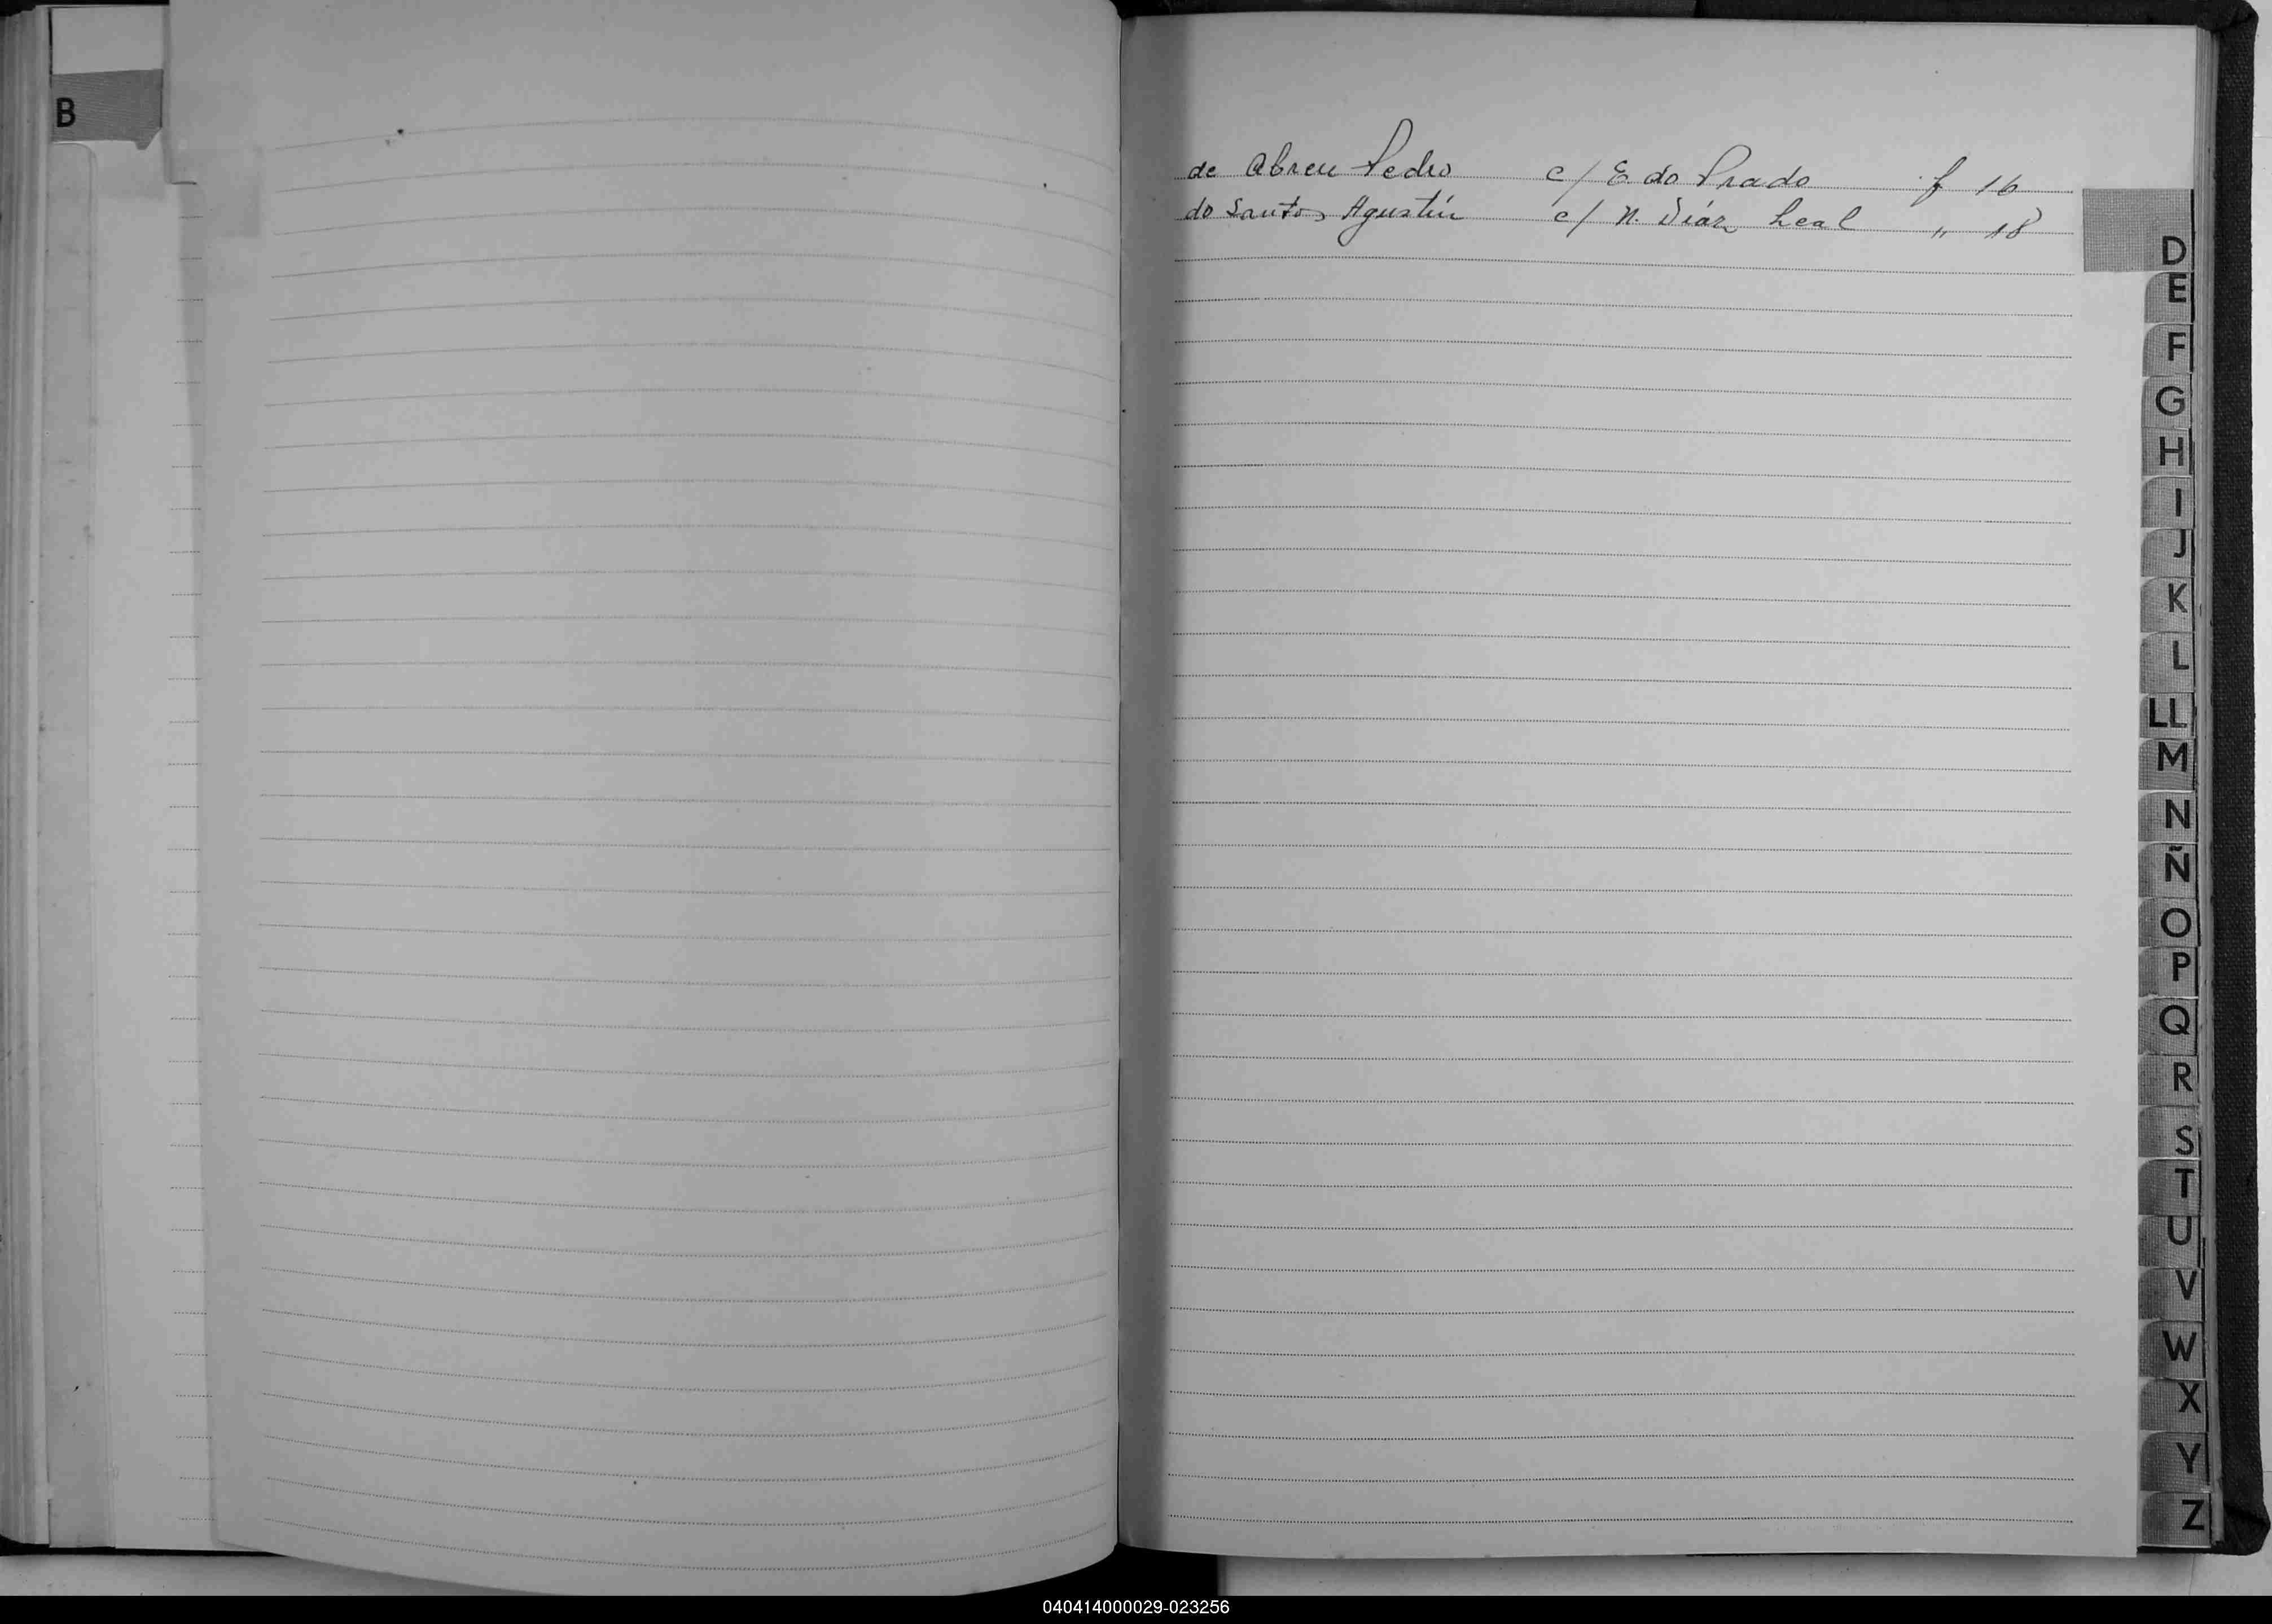 B
de Abreu Pedro c/ E. do Prado f 16
do Santos Agustín c/ N. Diáz Leal " 18
D
E
F
G
H
I
J
K
L
LL
M
N
Ñ
O
P
Q
R
S
T
U
V
W
X
Y
Z
040414000029-023256